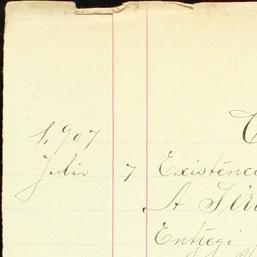 1,907
Julio 7 Existenc
A
Entregi